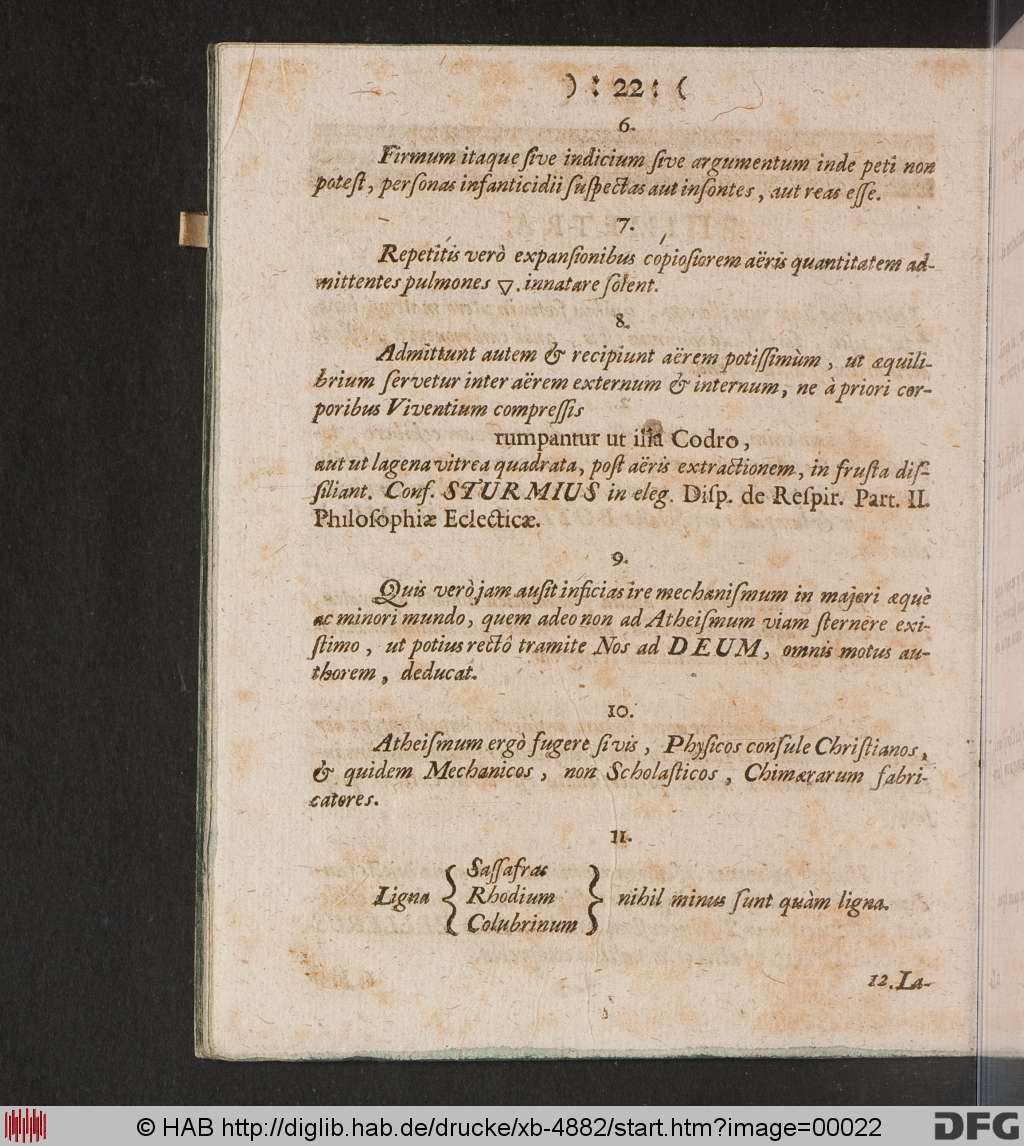 ) : 22 : (
6.
Firmum itaque ſive indicium ſive argumentum inde peti non
poteſt, perſonas infanticidii ſuſpectas aut inſontes, aut reas eſſe.
7.
Repetitis verò expanſionibus copioſiorem aëris quantitatem ad-
mittentes pulmones 🜄. innatare ſolent.
8.
Admittunt autem & recipiunt aërem potiſſimùm, ut æquili-
brium ſervetur inter aërem externum & internum, ne à priori cor-
poribus Viventium compreſſis
rumpantur ut ilia Codro,
aut ut lagena vitrea quadrata, poſt aëris extractionem, in fruſta diſ-
ſiliant. Conf. STURMIUS in eleg. Diſp. de Reſpir. Part. II.
Philoſophiæ Eclecticæ.
9.
Quis verò jam auſit inficias ire mechaniſmum in majori æquè
ac minori mundo, quem adeo non ad Atheiſmum viam ſternere exi-
ſtimo, ut potius rectô tramite Nos ad DEUM, omnis motus au-
thorem, deducat.
10.
Atheiſmum ergò fugere ſi vis, Phyſicos conſule Chriſtianos,
& quidem Mechanicos, non Scholaſticos, Chimærarum fabri-
catores.
11.
Ligna { Saſſafras
Rhodium
Colubrinum } nihil minus ſunt quàm ligna.
12. La-
© HAB http://diglib.hab.de/drucke/xb-4882/start.htm?image=00022
DFG